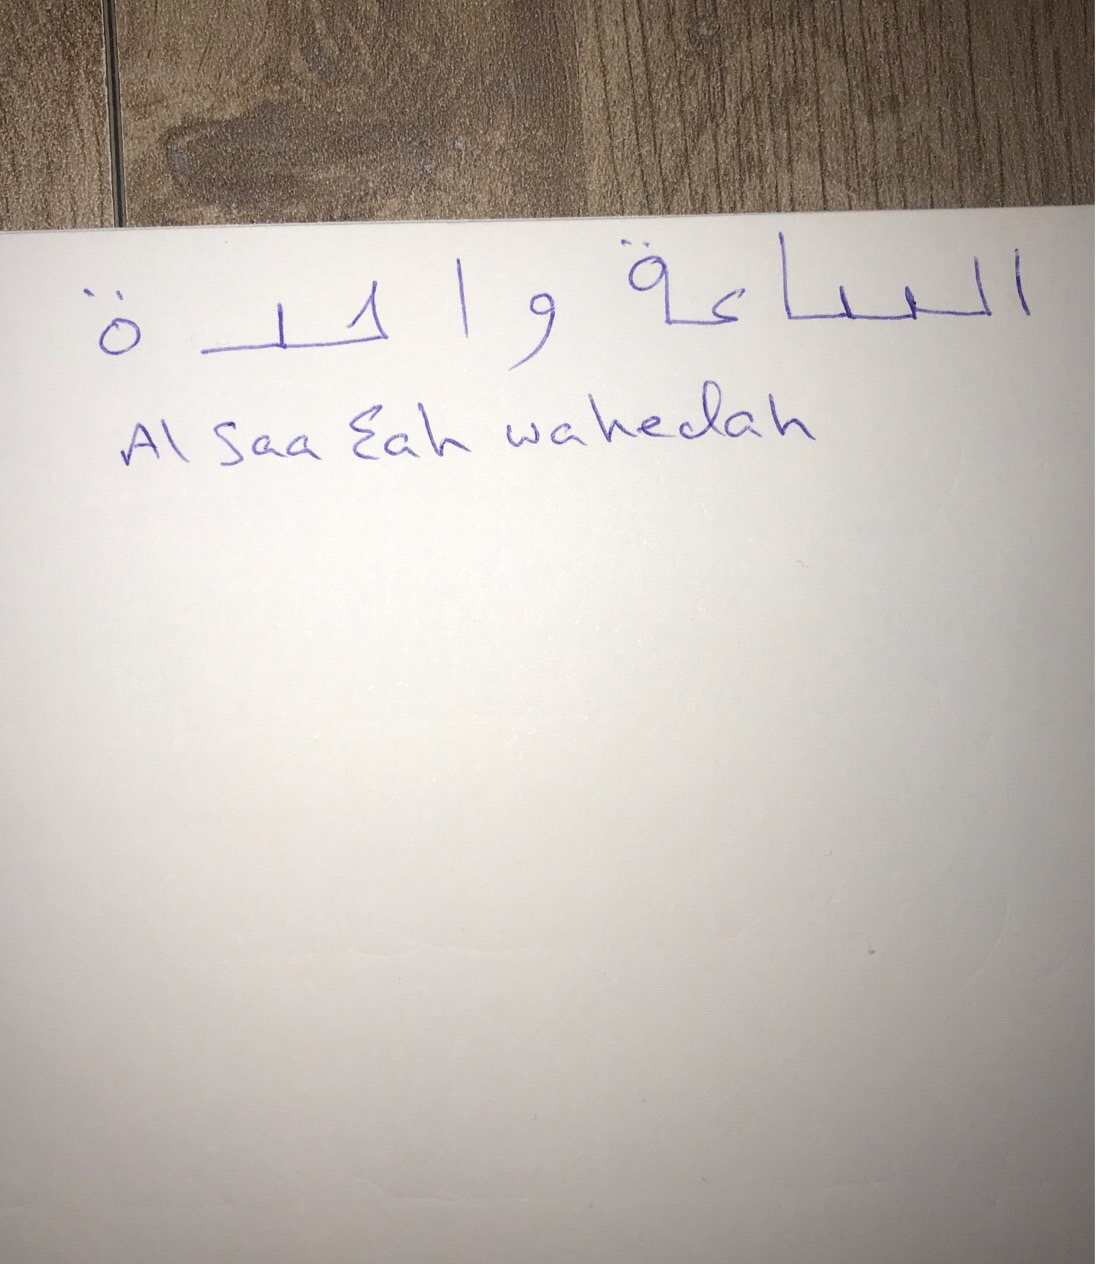 الساعة واحدة
Al Saa Eah wahedah